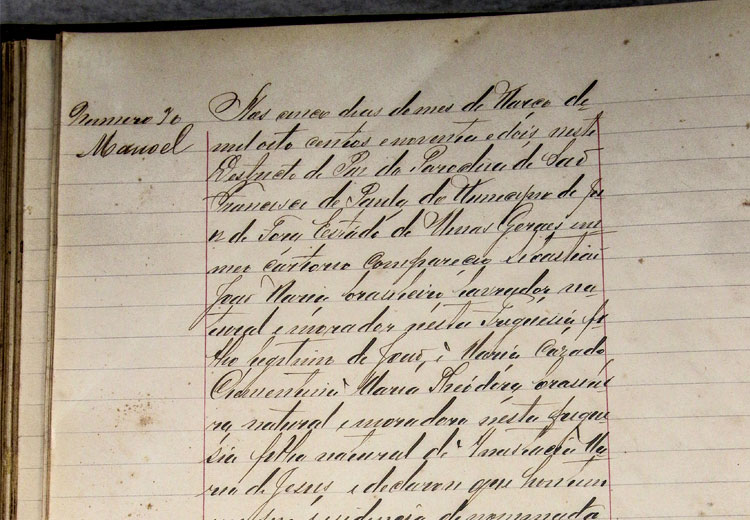 Numero 30
Manoel
Aos cinco dias do mes de Março de
mil oito centos e noventa e dois neste
Destricto de Paz da Parochia de São
Francisco de Paula do Municipio de Ju
iz de Fora Estado de Minas Geraes em
meo cartorio compareceo Sebastião
José Maria brasileiro lavrador na
tural e morador nesta Freguesia fi
lho legitimo de José, e Maria Cazado
Clementina Maria Theodora brasilei
ra natural e moradora nesta fregue
sia filha natural de Anastacia Ma
ria de Jesus e declarou que hontem
residencia denominada